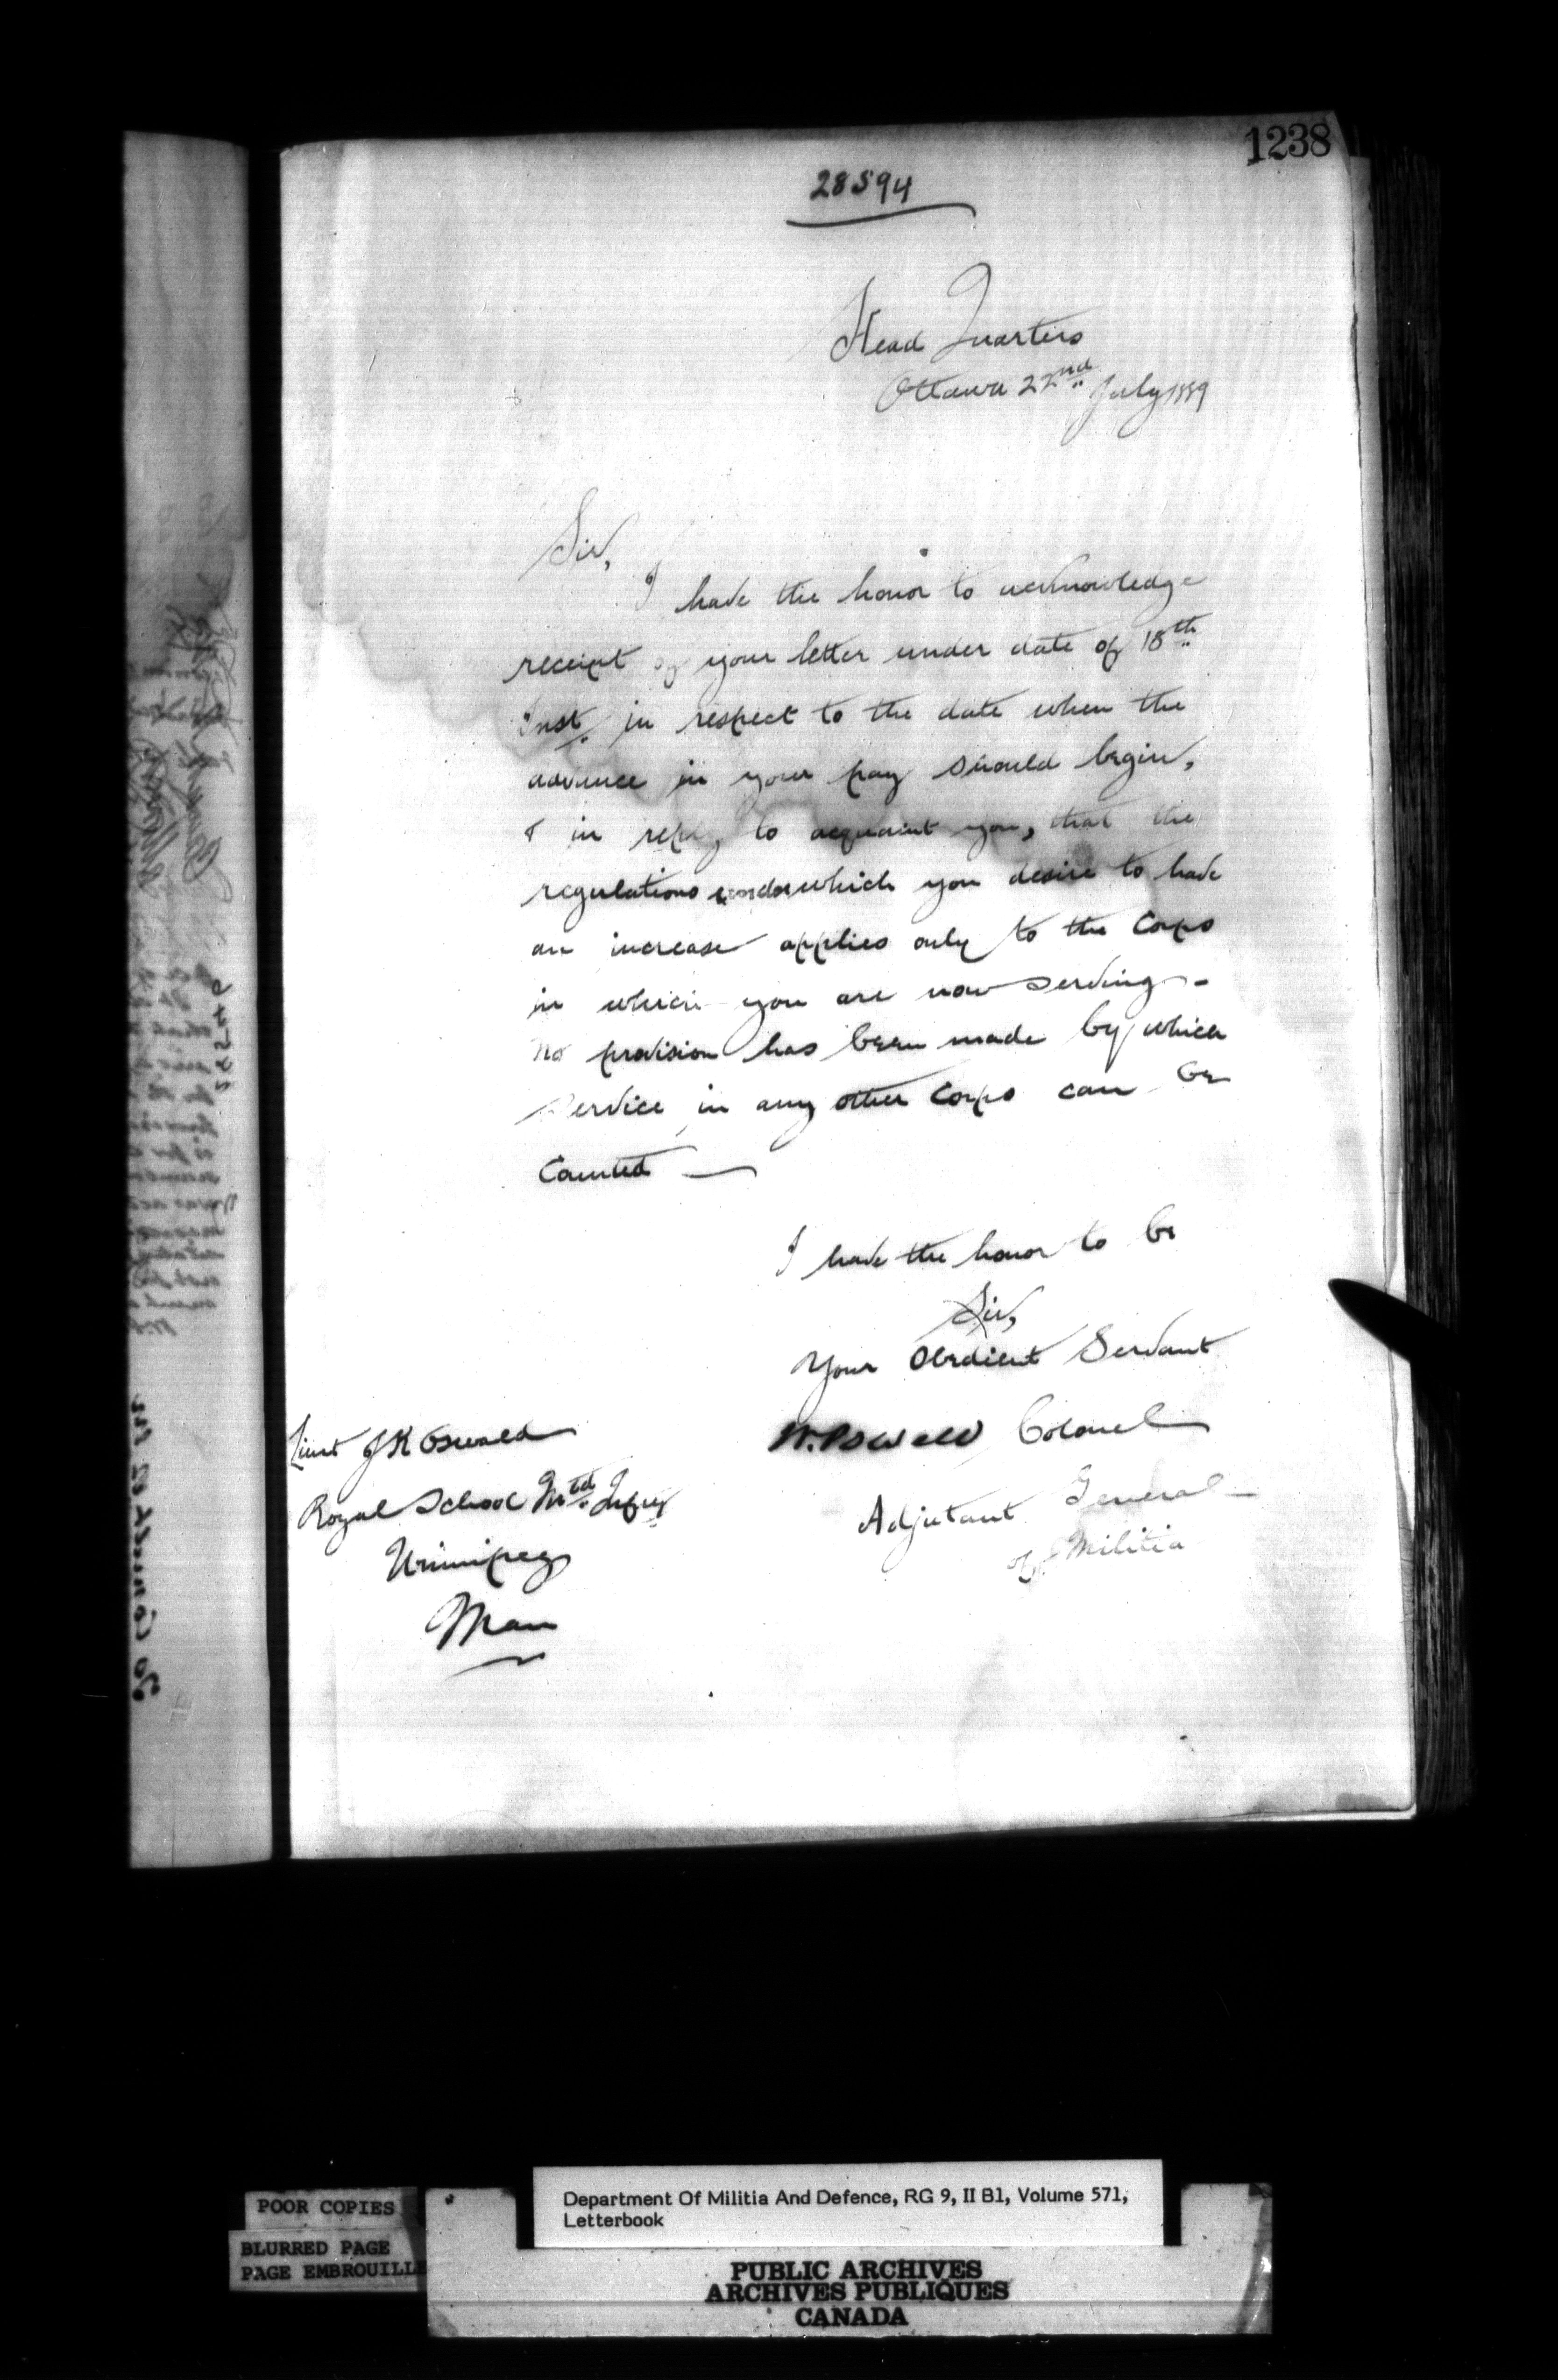 1238
28594
Head Quarters
Ottawa 22nd July 1889
Sir,
I have the honor to acknowledge
receipt of your letter under date of 18th
Inst. in respect to the date when the
advance in your pay should begin,
& in reply to acquaint you, that the
regulations under which you desire to have
an increase applies only to the Corps
in which you are now serving -
No provision has been made by which
service in any other Corps can be
Counted —
I have the honor to be
Sir,
Your Obedient Servant
W. Powell Colonel
Adjutant General
of Militia
Lieut J K Oswald
Royal School Mtd. Infy
Winnipeg
Man
POOR COPIES
BLURRED PAGE
PAGE EMBROUILLE
Department Of Militia And Defence, RG 9, II B1, Volume 571,
Letterbook
PUBLIC ARCHIVES
ARCHIVES PUBLIQUES
CANADA